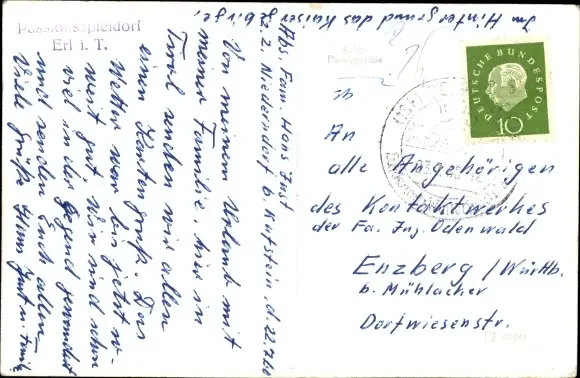 Passionsspieldorf
Erl i. T.
Im Hintergrund das Kaisergebirge,
Abs. Fam. Hans Just
z. Z. Niederndorf b. Kufstein, d. 22.7.60
Von meinem Urlaub mit
meiner Familie hier in
Tirol senden wir allen
einen Kartengruß. Das
Wetter war bis jetzt so-
weit gut. Wir sind schon
viel in der Gegend gewandert
und senden Euch allen
Viele Grüße Hans Just u. Familie
Echte
Photographie
DEUTSCHE BUNDESPOST
10
An
alle Angehörigen
des Kontaktwerkes
der Fa. Ing. Odenwald
Enzberg / Württb.
b. Mühlacker
Dorfwiesenstr.